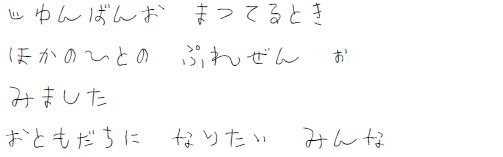 じゅんばんお まつてるとき
ほかのひとの ぷれぜん お
みました
おともだちに なりたい みんな